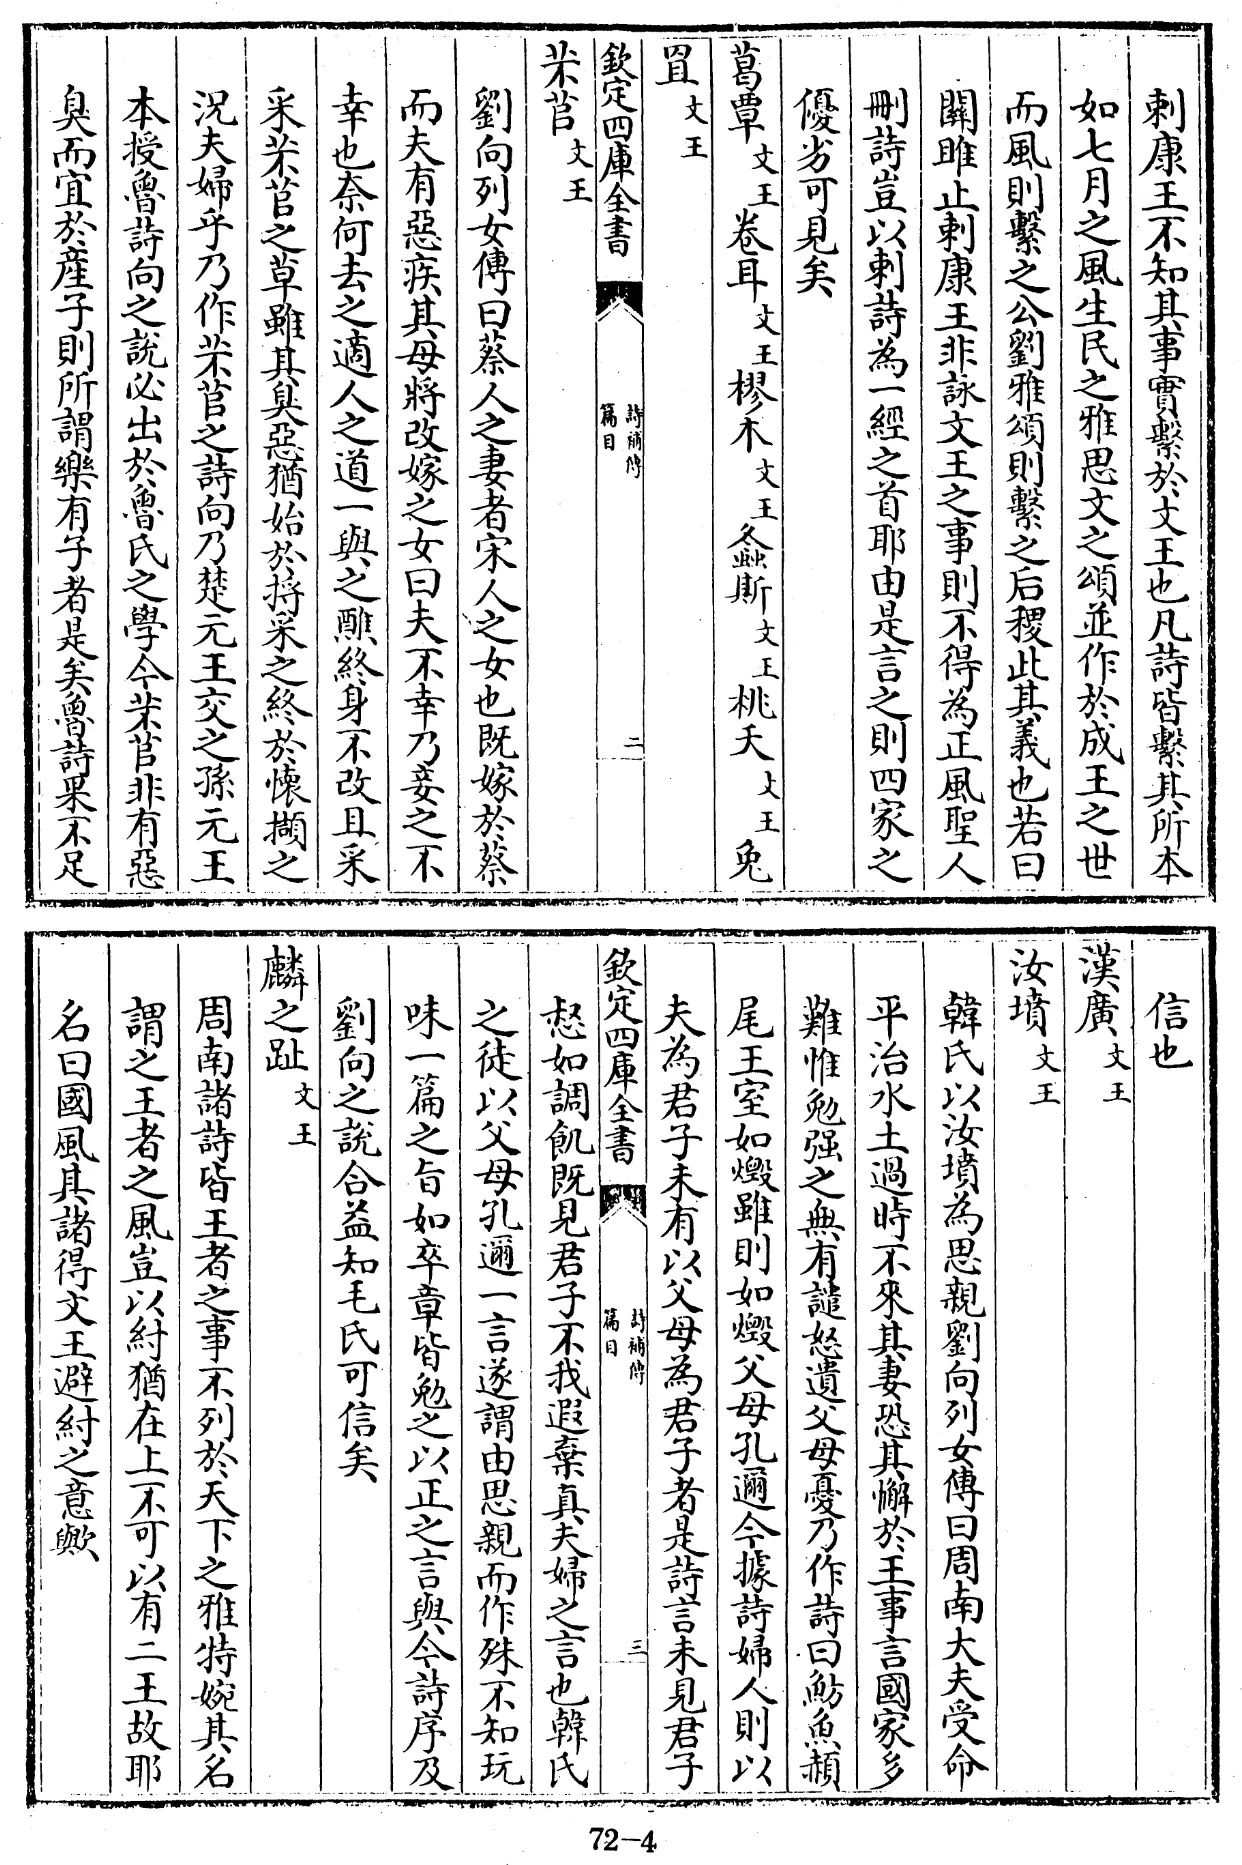 刺康王不知其事實繫於文王也凡詩皆繫其所本
如七月之風生民之雅思文之頌並作於成王之世
而風則繫之公劉雅頌則繫之后稷此其義也若曰
關雎止刺康王非詠文王之事則不得為正風聖人
刪詩豈以刺詩為一經之首耶由是言之則四家之
優劣可見矣
葛覃文王卷耳文王樛木文王螽斯文王桃夭文王兔
罝文王
欽定四庫全書
詩補傳
篇目
二
芣苢文王
劉向列女傳曰蔡人之妻者宋人之女也既嫁於蔡
而夫有惡疾其母將改嫁之女曰夫不幸乃妾之不
幸也奈何去之適人之道一與之醮終身不改且采
采芣苢之草雖其臭惡猶始於捋采之終於懷擷之
況夫婦乎乃作芣苢之詩向乃楚元王交之孫元王
本授魯詩向之說必出於魯氏之學今芣苢非有惡
臭而宜於產子則所謂樂有子者是矣魯詩果不足
信也
漢廣文王
汝墳文王
韓氏以汝墳為思親劉向列女傳曰周南大夫受命
平治水土過時不來其妻恐其懈於王事言國家多
難惟勉强之無有譴怒遺父母憂乃作詩曰魴魚赬
尾王室如燬雖則如燬父母孔邇今據詩婦人則以
夫為君子未有以父母為君子者是詩言未見君子
欽定四庫全書
詩補傳
篇目
三
惄如調飢既見君子不我遐棄真夫婦之言也韓氏
之徒以父母孔邇一言遂謂由思親而作殊不知玩
味一篇之旨如卒章皆勉之以正之言與今詩序及
劉向之說合益知毛氏可信矣
麟之趾文王
周南諸詩皆王者之事不列於天下之雅特婉其名
謂之王者之風豈以紂猶在上不可以有二王故耶
名曰國風其諸得文王避紂之意歟
72-4